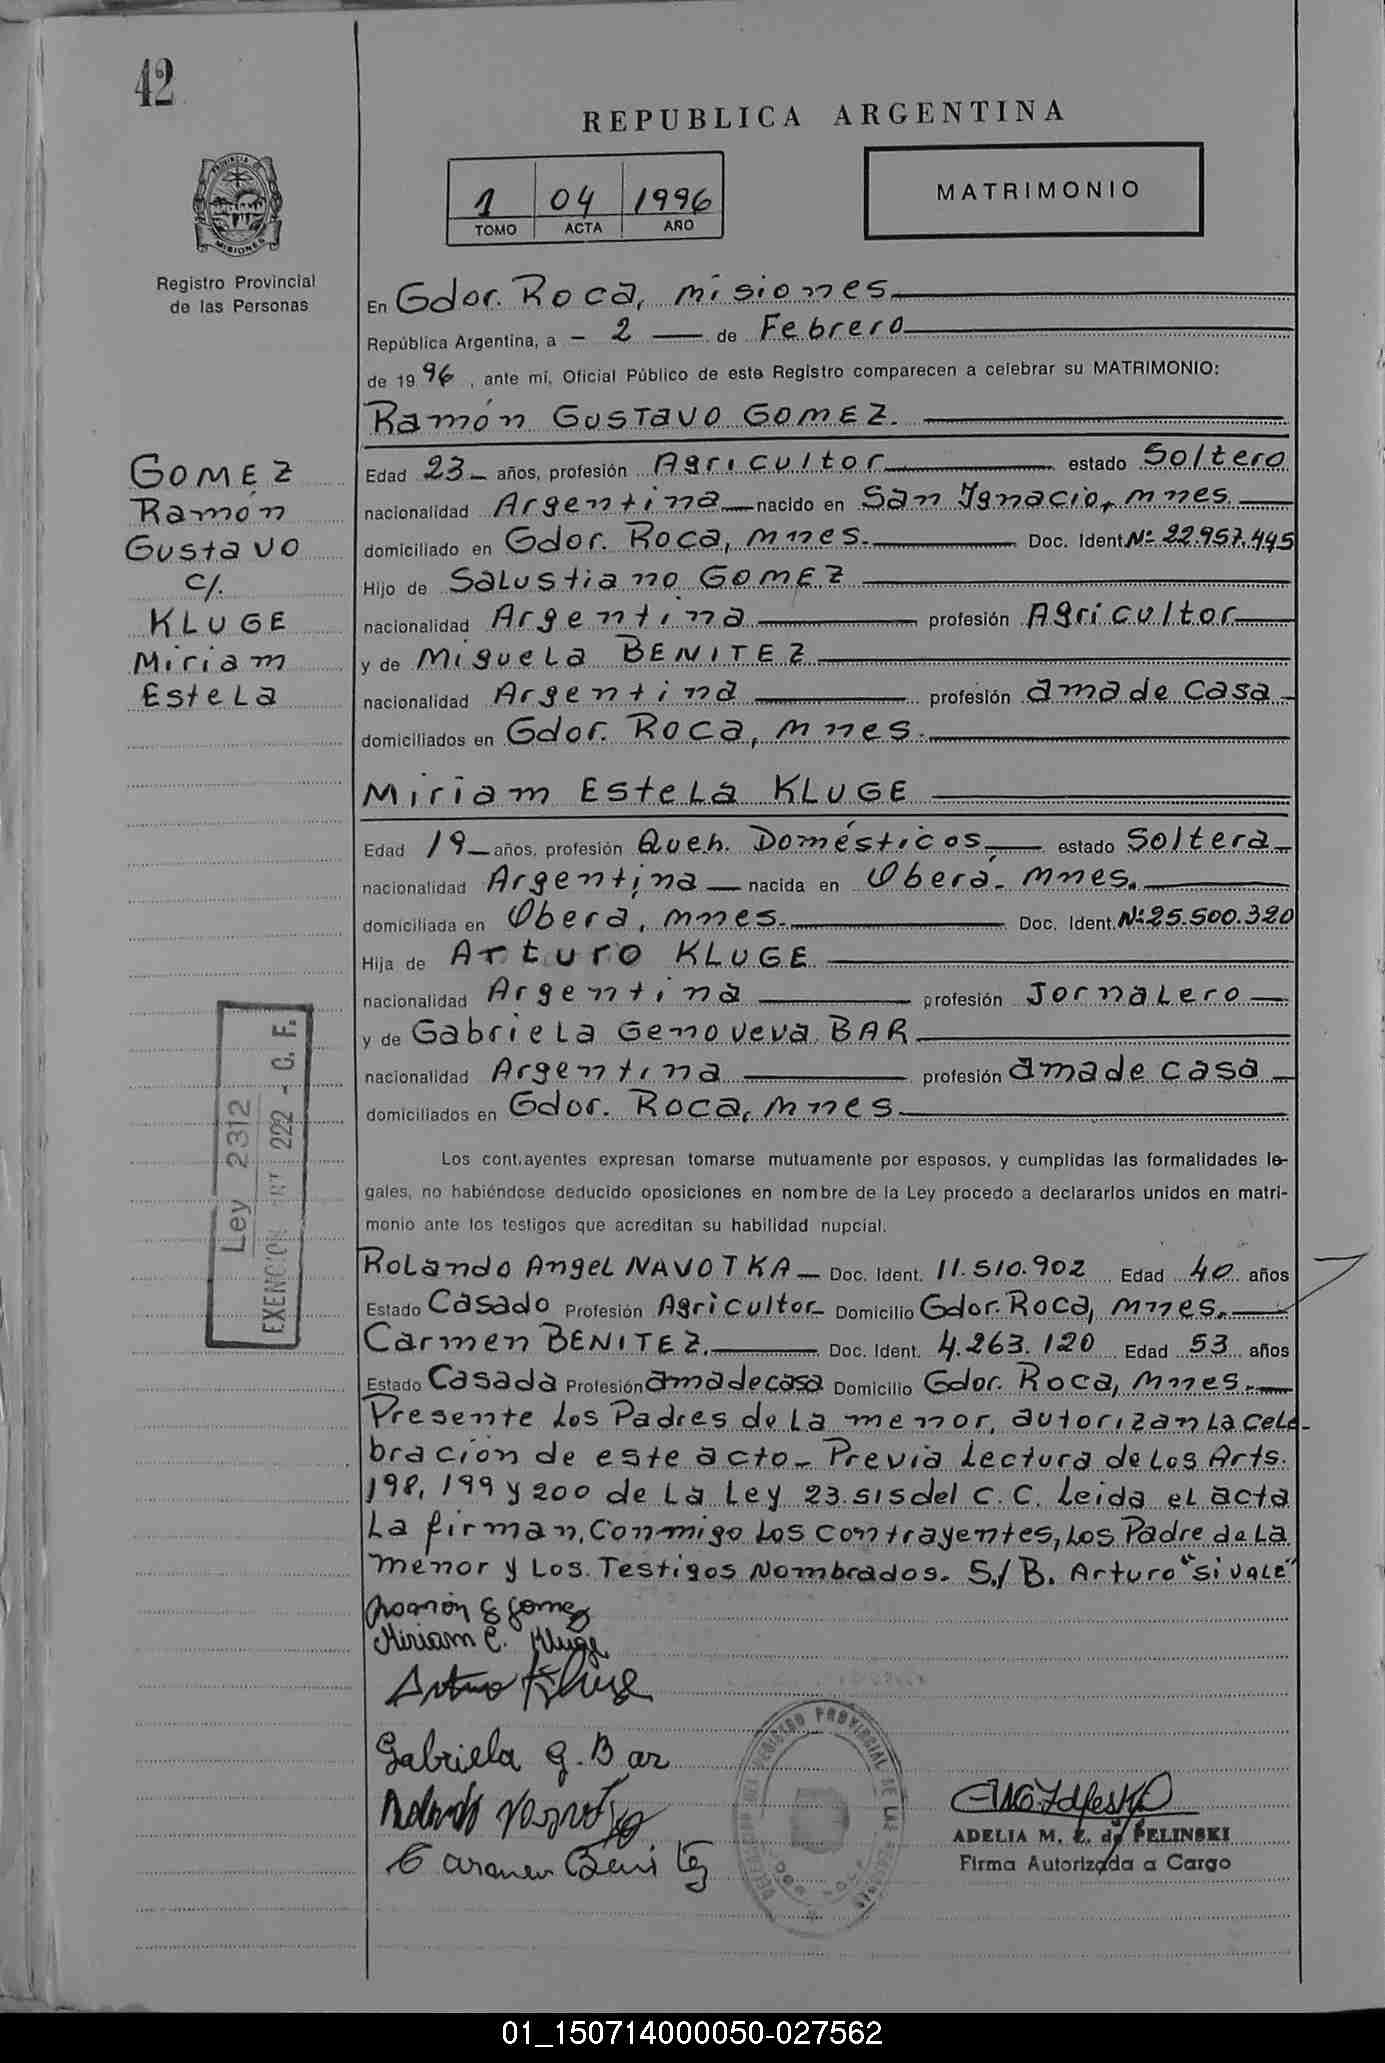 42
REPUBLICA ARGENTINA
1 04 1996
TOMO ACTA AÑO
MATRIMONIO
PROVINCIA DE
MISIONES
Registro Provincial
de las Personas
En Gdor. Roca, misiones
República Argentina, a - 2 — de Febrero
de 1996, ante mí, Oficial Público de este Registro comparecen a celebrar su MATRIMONIO:
Ramón GUSTAVO GOMEZ.
GOMEZ
Ramón
Gustavo
c/.
KLUGE
Miriam
Estela
Edad 23 - años, profesión Agricultor estado Soltero
nacionalidad Argentina nacido en San Ignacio, mnes.
domiciliado en Gdor. Roca, mnes. Doc. Ident. Nº 22.957.445
Hijo de Salustiano GOMEZ
nacionalidad Argentina profesión Agricultor
y de Miguela BENITEZ
nacionalidad Argentina profesión ama de casa
domiciliados en Gdor. Roca, mnes.
Miriam Estela KLUGE
Edad 19 - años, profesión Queh. Domésticos estado Soltera
nacionalidad Argentina nacida en Oberá - mnes.
domiciliada en Obera, mnes. Doc. Ident. Nº 25.500.320
Hija de Arturo KLUGE
nacionalidad Argentina profesión Jornalero
y de Gabriela Genoveva BAR
nacionalidad Argentina profesión ama de casa
domiciliados en Gdor. Roca, mnes
Ley 2312
EXENCION ART 222 - C. F.
Los contrayentes expresan tomarse mutuamente por esposos, y cumplidas las formalidades le-
gales, no habiéndose deducido oposiciones en nombre de la Ley procedo a declararlos unidos en matri-
monio ante los testigos que acreditan su habilidad nupcial.
Rolando Angel NAVOTKA - Doc. Ident. 11.510.902 Edad 40 años
Estado Casado Profesión Agricultor Domicilio Gdor. Roca, mnes.
Carmen BENITEZ. Doc. Ident. 4.263.120 Edad 53 años
Estado Casada Profesión ama de casa Domicilio Gdor. Roca, mnes.
Presente Los Padres de La menor, autorizan La cele-
bración de este acto - Previa Lectura de Los Arts.
198, 199 y 200 de La Ley 23.515 del C.C. Leida el acta
La firman, Conmigo Los contrayentes, Los Padre de La
menor y Los Testigos Nombrados. S./B. Arturo "Si vale"
Ramón G Gomez
Miriam E. Kluge
Arturo Kluge
Gabriela G. Bar
Rolando Navotka
Carmen Benitez
DELEGACION DEL REGISTRO PROVINCIAL DE LAS PERSONAS
ADELIA M. Z. de PELINSKI
Firma Autorizada a Cargo
01_150714000050-027562